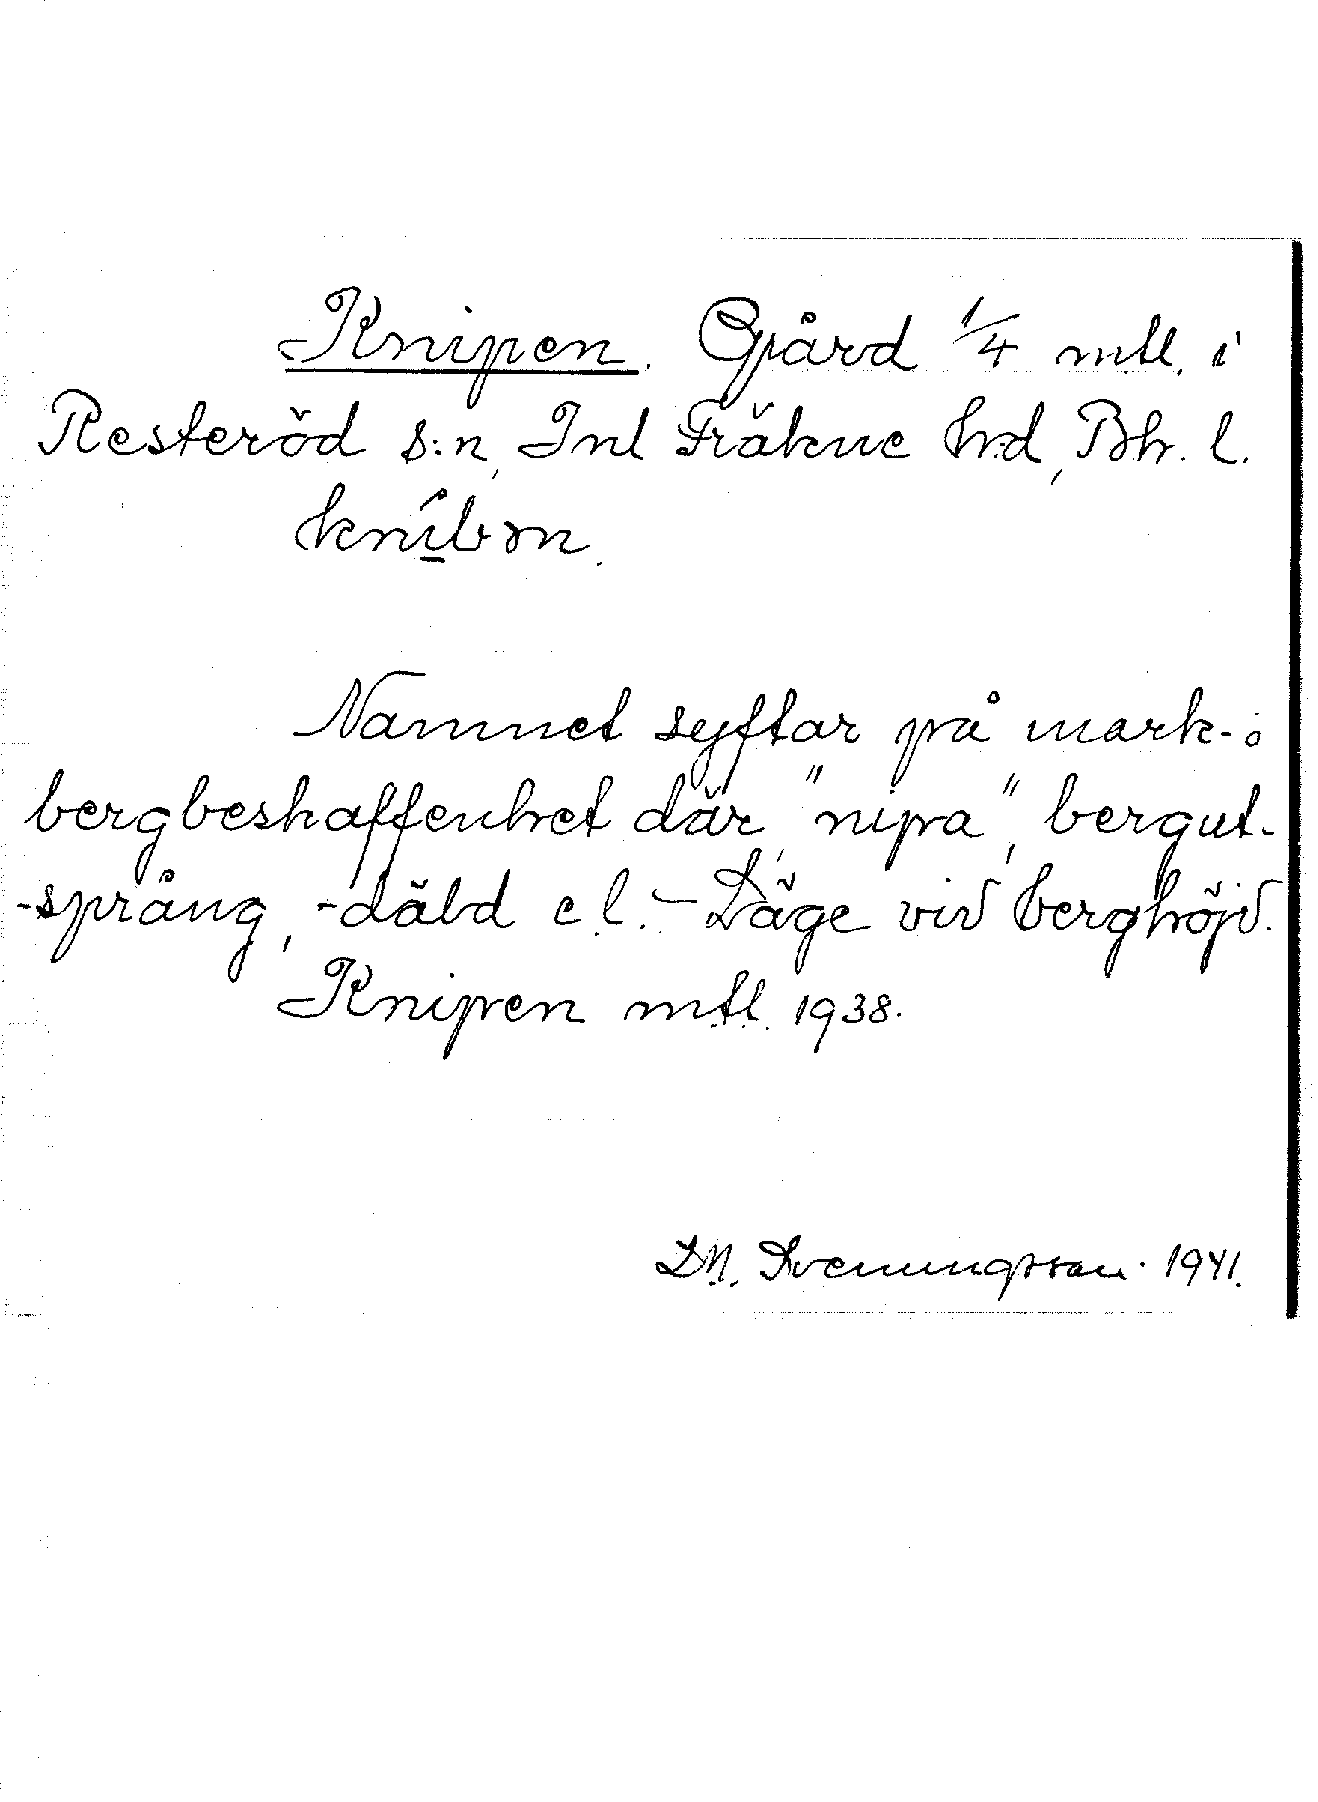 Knipen. Gård 1/4 mtl. i
Resteröd s:n, Inl Fräkne hd, Bh. l.
kni̠bən.
Namnet syftar på mark- o
bergbeskaffenhet där, "nipa", bergut-
-språng, -däld e.l. - Läge vid berghöjd.
Knipen mtl. 1938.
D.N. Svenningsson. 1941.